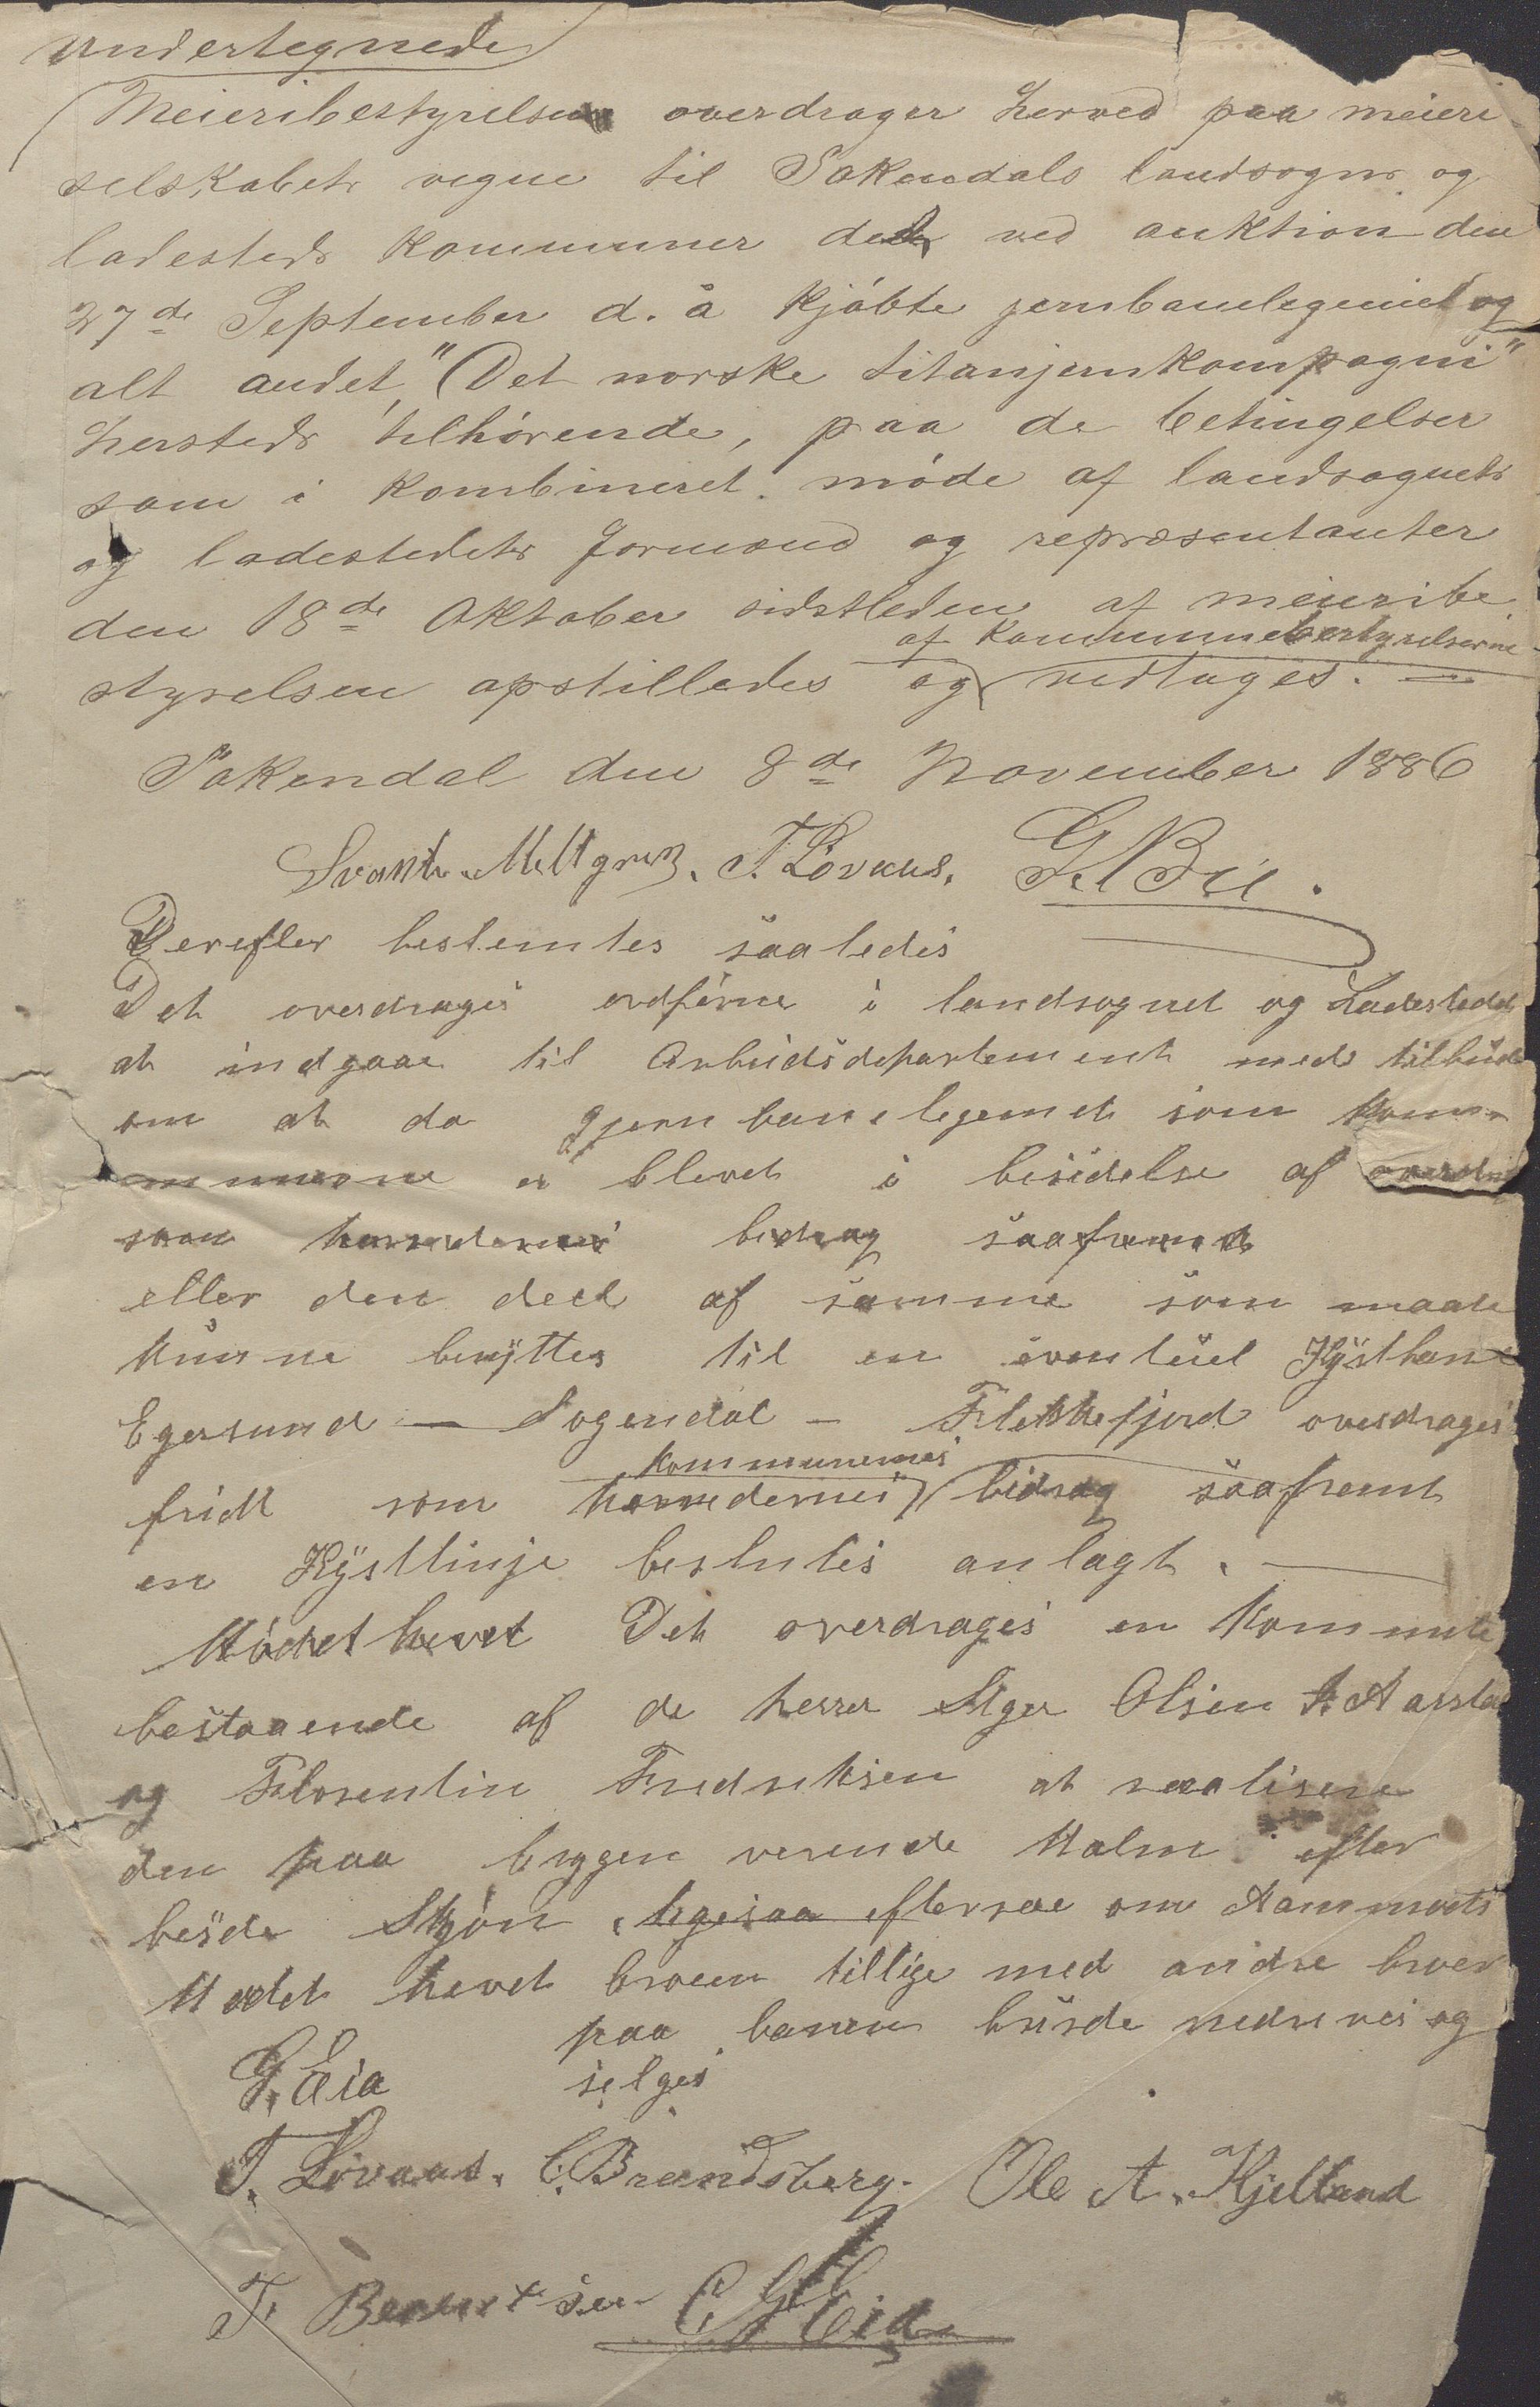 undertegnede
Meieribestyrelsen overdrager herved paa meieri
selskabets vegne til Sokendals landsogns og
ladesteds kommuner det ved auktion den
27de September d. å kjöbte jernbanelegemet og
alt andet, "Det norske titanjernkompagni"
hersteds tilhörende, paa de betingelser
som i kombineret möde af landsognets
og ladestedets formænd og repræsentanter
den 18de Oktober sidstleden af meieribe
af kommunebestyrelserne
styrelsen opstilledes og vedtoges. —
Sokendal den 8de November 1886
Svante Meltgren. T. Lövaas.
Derefter bestemtes saaledes
Det overdrages ordförne i landsognet og Ladestedet
at indgaae til Arbeidsdepartement med tilbud
om at da Jernbanelegemet som kom-
munerne er blevet i besidelse af overdr
som herredernes bidrag saafremt
eller den deel af samme som maate
kunne benyttes til en eventuel Kystbane
Egersund — Sogendal — Flekkefjord overdrages
kommunernes
fridt som herredernes bidrag saafremt
en Kystlinje besluttes anlagt. —
Mödet hevet Det overdrages en Kommite
bestaaende af de herrer Elger Olsen A. Aarstad
og Florentin Fredriksen at realisere
den paa bryggen verende Malm efter
beste Skjön, ligesaa eftersee om Hammrets
Mødet hevet broen tillige med andre broer
paa banen burde nedrives og
G. Eia selges
T. Lövaas. C. Brandsberg. Ole A. Kjelland
T. Berentsen Eia